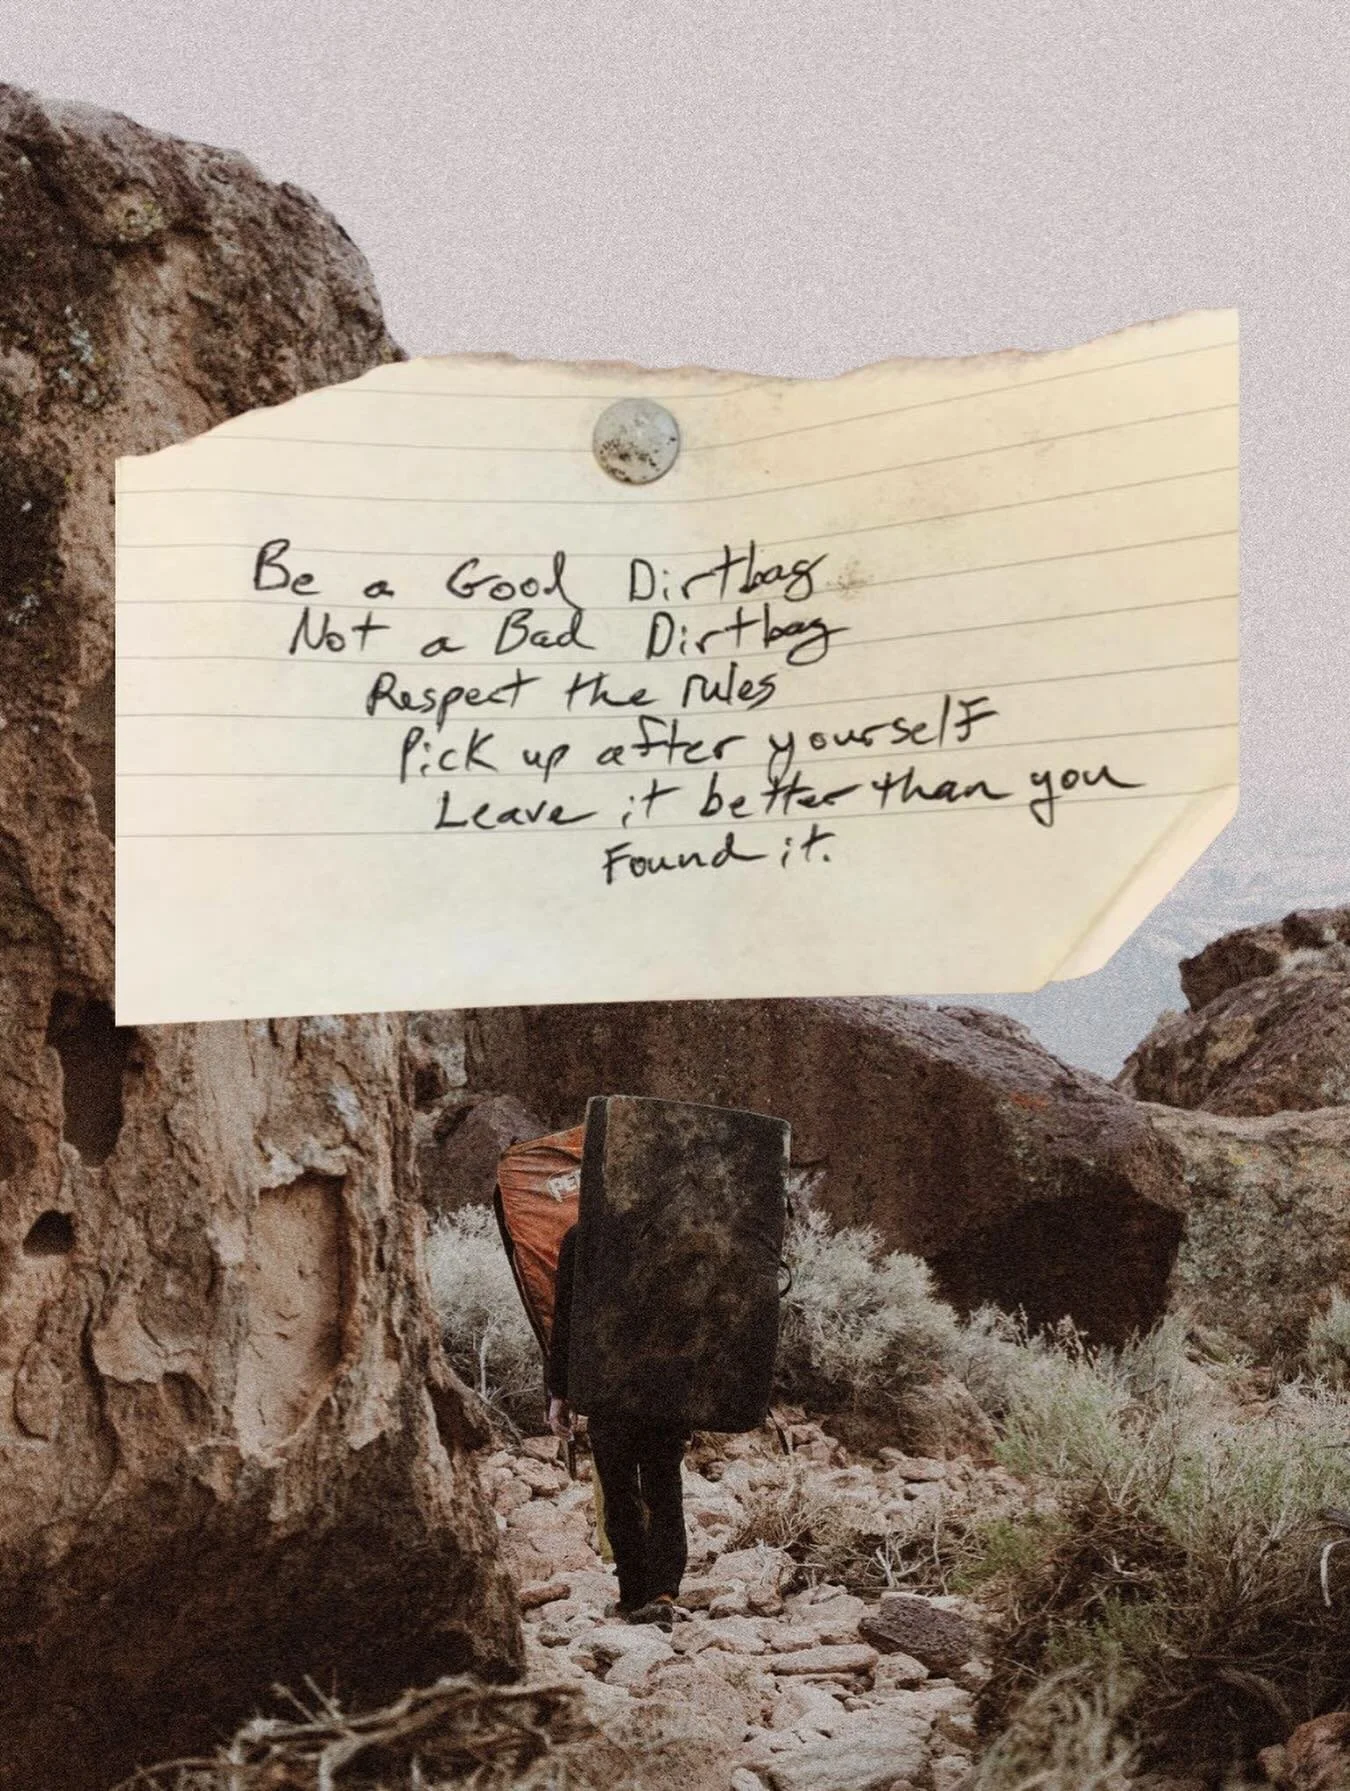 Be a Good Dirtbag
Not a Bad Dirtbag
Respect the rules
Pick up after yourself
Leave it better than you
Found it.